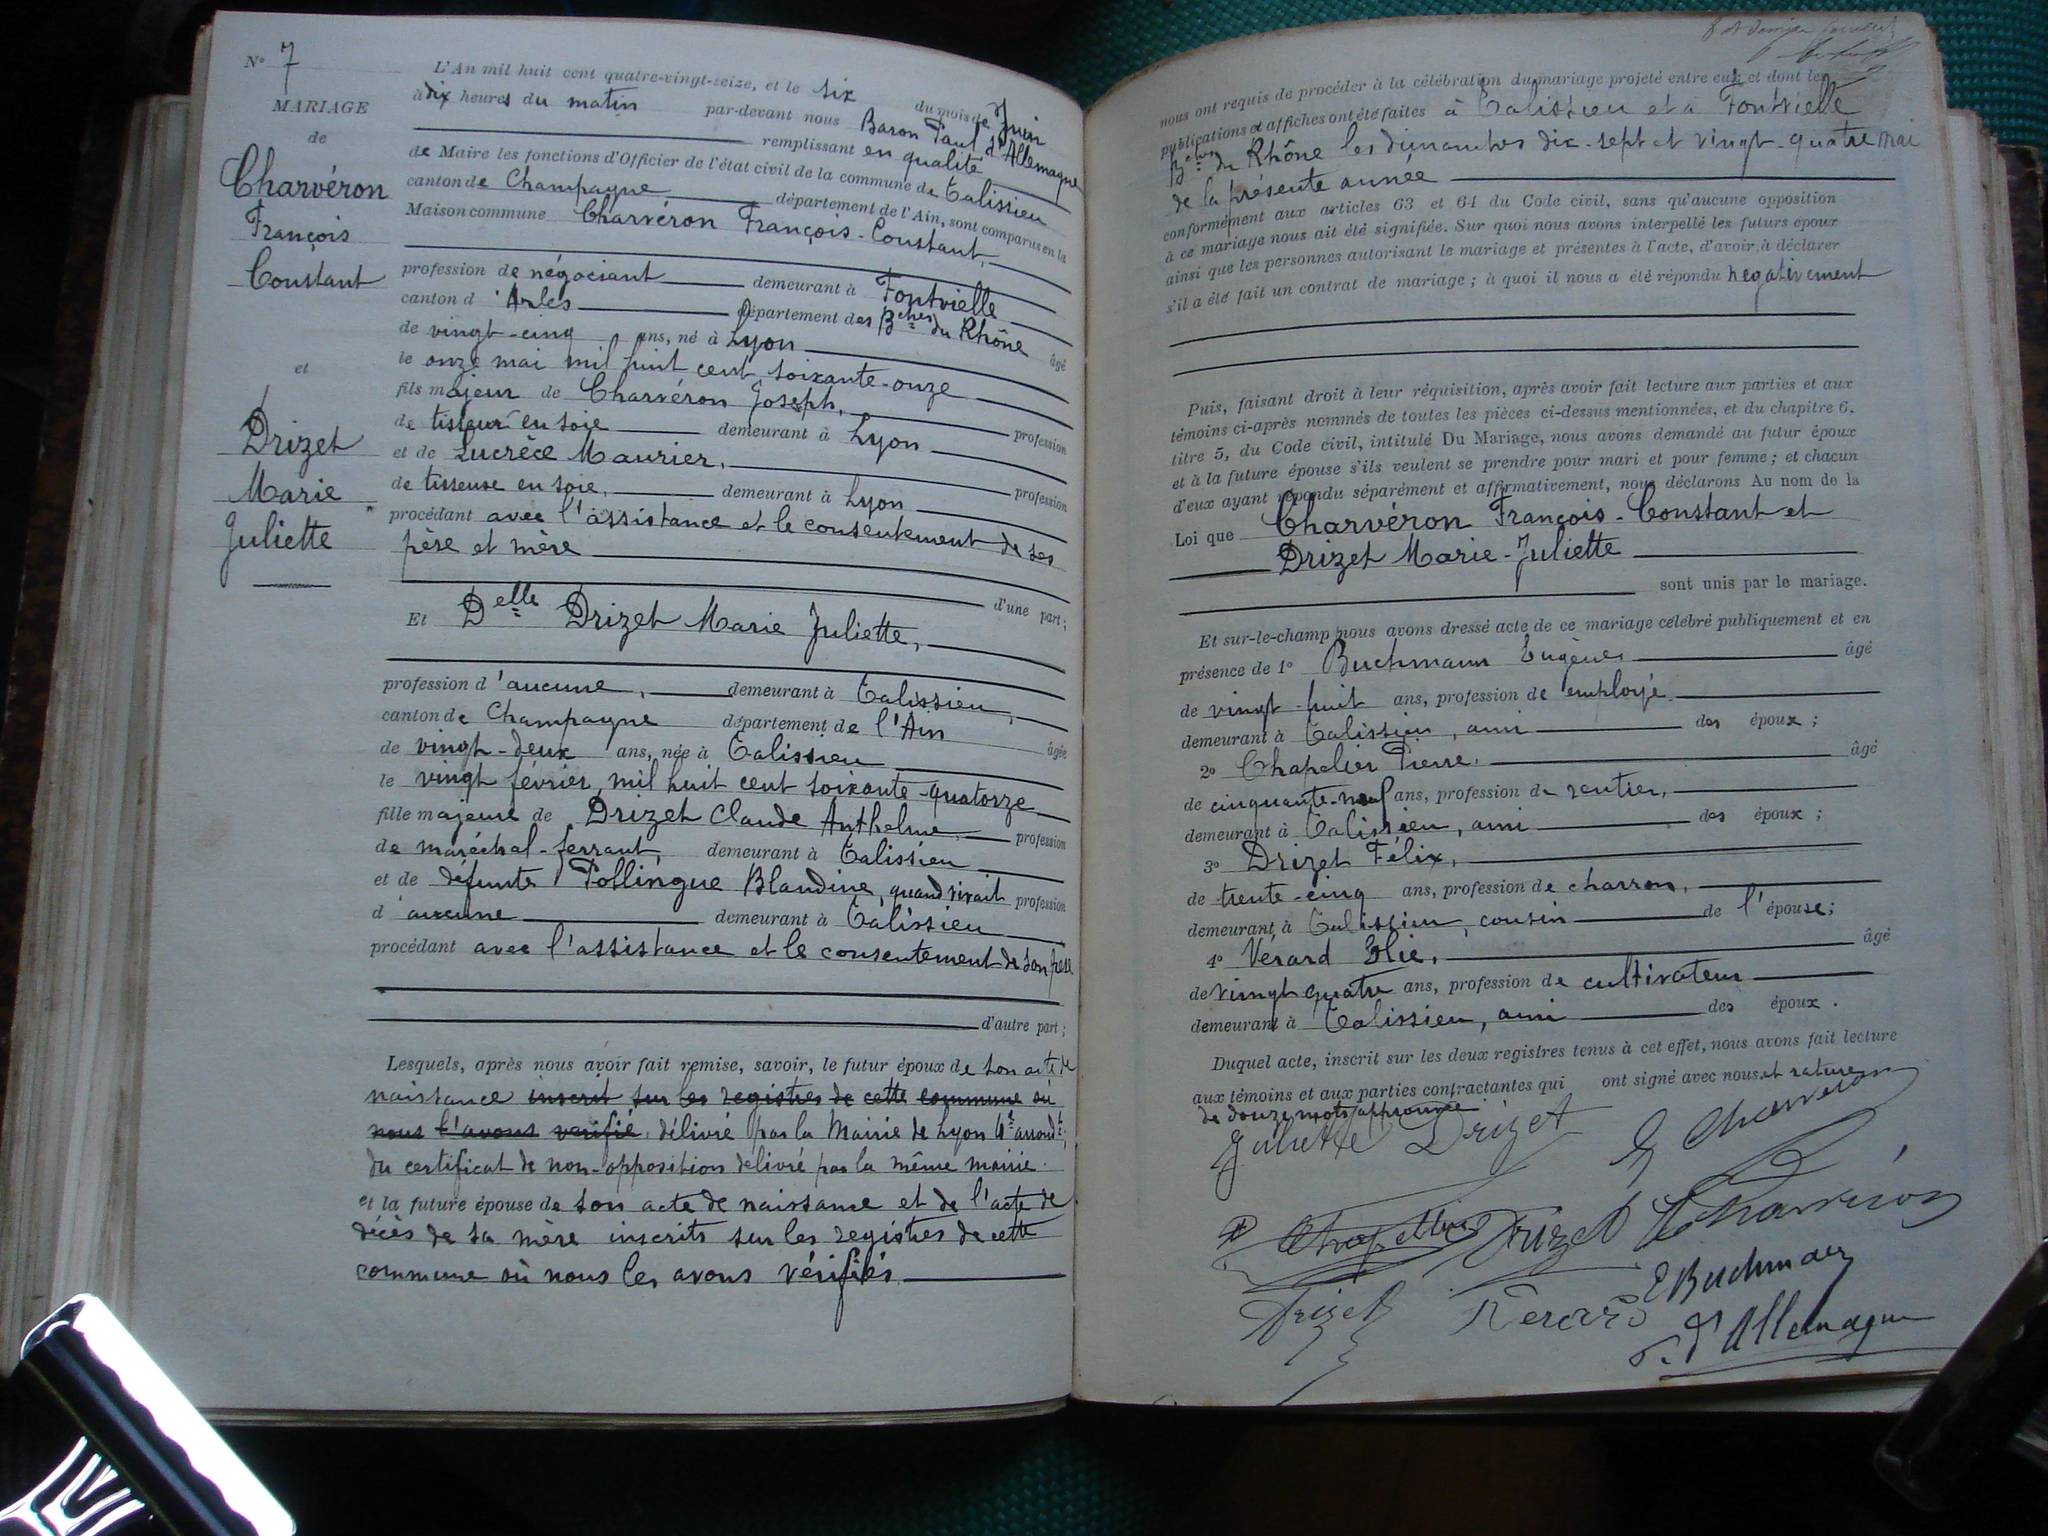 N° 7
MARIAGE
de
Charvéron
François
Constant
et
Drizet
Marie
Juliette
L'An mil huit cent quatre-vingt-seize, et le six du mois de Juin
à dix heures du matin par-devant nous Baron Paul d'Allemagne
remplissant en qualité
de Maire les fonctions d'Officier de l'état civil de la commune de Talissieu
canton de Champagne département de l'Ain, sont comparus en la
Maison commune Charvéron François-Constant,
profession de négociant demeurant à Fontvielle
canton d'Arles département des Bches du Rhône âgé
de vingt-cinq ans, né à Lyon
le onze mai mil huit cent soixante-onze
fils majeur de Charvéron Joseph, profession
de tisseur en soie demeurant à Lyon
et de Lucrèce Maurier, profession
de tisseuse en soie, demeurant à Lyon
procédant avec l'assistance et le consentement de ses
père et mère
d'une part;
Et Delle Drizet Marie Juliette,
profession d'aucune, demeurant à Talissieu,
canton de Champagne département de l'Ain âgée
de vingt-deux ans, née à Talissieu
le vingt février mil huit cent soixante-quatorze
fille majeure de Drizet Claude Anthelme, profession
de maréchal-ferrant, demeurant à Talissieu
et de défunte Pollingue Blandine, quand vivait profession
d'aucune demeurant à Talissieu
procédant avec l'assistance et le consentement de son père
d'autre part;
Lesquels, après nous avoir fait remise, savoir, le futur époux de son acte de
naissance inscrit sur les registres de cette commune où
nous l'avons vérifié, délivré par la Mairie de Lyon 4e arrondt,
du certificat de non-opposition délivré par la même mairie.
et la future épouse de son acte de naissance et de l'acte de
décès de sa mère inscrits sur les registres de cette
commune où nous les avons vérifiés
nous ont requis de procéder à la célébration du mariage projeté entre eux et dont les
publications et affiches ont été faites à Talissieu et à Fontvielle
Bches du Rhône les dimanches dix-sept et vingt-quatre mai
de la présente année
conformément aux articles 63 et 64 du Code civil, sans qu'aucune opposition
à ce mariage nous ait été signifiée. Sur quoi nous avons interpellé les futurs époux
ainsi que les personnes autorisant le mariage et présentes à l'acte, d'avoir à déclarer
s'il a été fait un contrat de mariage; à quoi il nous a été répondu négativement
Puis, faisant droit à leur réquisition, après avoir fait lecture aux parties et aux
témoins ci-après nommés de toutes les pièces ci-dessus mentionnées, et du chapitre 6,
titre 5, du Code civil, intitulé Du Mariage, nous avons demandé au futur époux
et à la future épouse s'ils veulent se prendre pour mari et pour femme; et chacun
d'eux ayant répondu séparément et affirmativement, nous déclarons Au nom de la
Loi que Charvéron François-Constant et
Drizet Marie-Juliette
sont unis par le mariage.
Et sur-le-champ nous avons dressé acte de ce mariage célébré publiquement et en
présence de 1° Buchmann Eugène âgé
de vingt-huit ans, profession de employé
demeurant à Talissieu, ami des époux;
2° Chapelier Pierre, âgé
de cinquante-neuf ans, profession de rentier,
demeurant à Talissieu, ami des époux;
3° Drizet Félix,
de trente-cinq ans, profession de charron,
demeurant à Talissieu, cousin de l'épouse;
4° Vérard Elie, âgé
de vingt quatre ans, profession de cultivateur
demeurant à Talissieu, ami des époux.
Duquel acte, inscrit sur les deux registres tenus à cet effet, nous avons fait lecture
aux témoins et aux parties contractantes qui ont signé avec nous et rature
de douze mots approuvée
Juliette Drizet Charvéron
Drizet Charvéron
E Buchmann
Drizet Verard
P. d'Allemagne